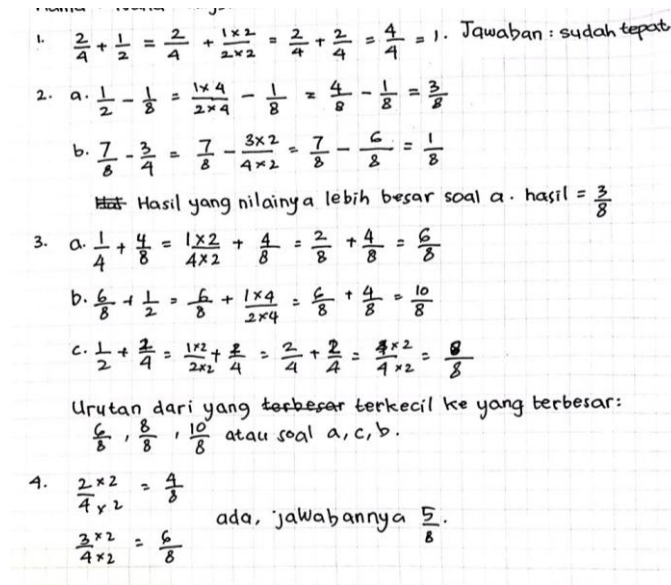 1. 2/4 + 1/2 = 2/4 + 1x2/2x2 = 2/4 + 2/4 = 4/4 = 1. Jawaban : sudah tepat
2. a. 1/2 - 1/8 = 1x4/2x4 - 1/8 = 4/8 - 1/8 = 3/8
b. 7/8 - 3/4 = 7/8 - 3x2/4x2 = 7/8 - 6/8 = 1/8
Hasil yang nilainya lebih besar soal a. hasil = 3/8
3. a. 1/4 + 4/8 = 1x2/4x2 + 4/8 = 2/8 + 4/8 = 6/8
b. 6/8 + 1/2 = 6/8 + 1x4/2x4 = 6/8 + 4/8 = 10/8
c. 1/2 + 2/4 = 1x2/2x2 + 2/4 = 2/4 + 2/4 = 4x2/4x2 = 8/8
Urutan dari yang terbesar terkecil ke yang terbesar:
6/8, 8/8, 10/8 atau soal a, c, b.
4. 2x2/4x2 = 4/8
ada, jawabannya 5/8.
3x2/4x2 = 6/8